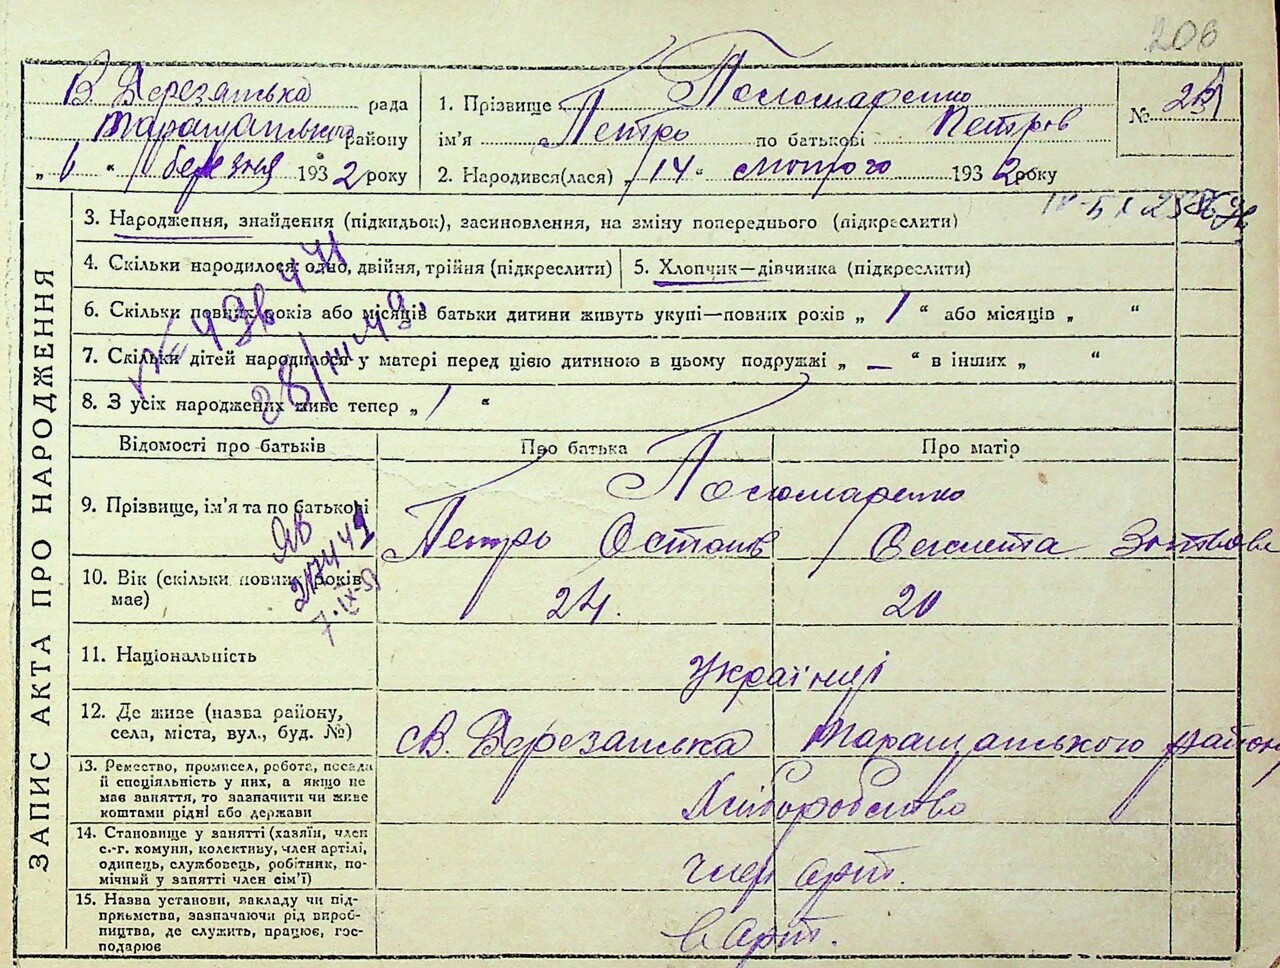 206
В. Березянська рада
Таращанського району
„ 6 “ березня 1932 року
1. Прізвище Пономаренко
ім'я Петро по батькові Петров
2. Народився(лася) „ 14 “ лютого 1932 року
№
ЗАПИС АКТА ПРО НАРОДЖЕННЯ
3. Народження, знайдення (підкидьок), засиновлення, на зміну попереднього (підкреслити)
4. Скільки народилося: одно, двійня, трійня (підкреслити)
5. Хлопчик—дівчинка (підкреслити)
6. Скільки повних років або місяців батьки дитини живуть укупі—повних років „ 1 “ або місяців „ “
7. Скільки дітей народилося у матері перед цією дитиною в цьому подружжі „ — “ в інших „ “
8. З усіх народжених живе тепер „ 1 “
Відомості про батьків
Про батька
Про матір
9. Прізвище, ім'я та по батькові
Пономаренко
Петро Остапів
10. Вік (скільки повних років має)
24.
20
11. Національність
Українці
12. Де живе (назва району,
села, міста, вул., буд. №)
с В. Березанська Таращанського району
13. Ремество, промисел, робота, посада
й спеціяльність у них, а якщо не
має заняття, то зазначити чи живе
коштами рідні або держави
Хліборобство
14. Становище у занятті (хазяїн, член
с.-г. комуни, колективу, член артілі,
одинець, службовець, робітник, по-
мічний у занятті член сім'ї)
член арт.
15. Назва установи, закладу чи під-
приємства, зазначаючи рід вироб-
ництва, де служить, працює, гос-
подарює
в арт.